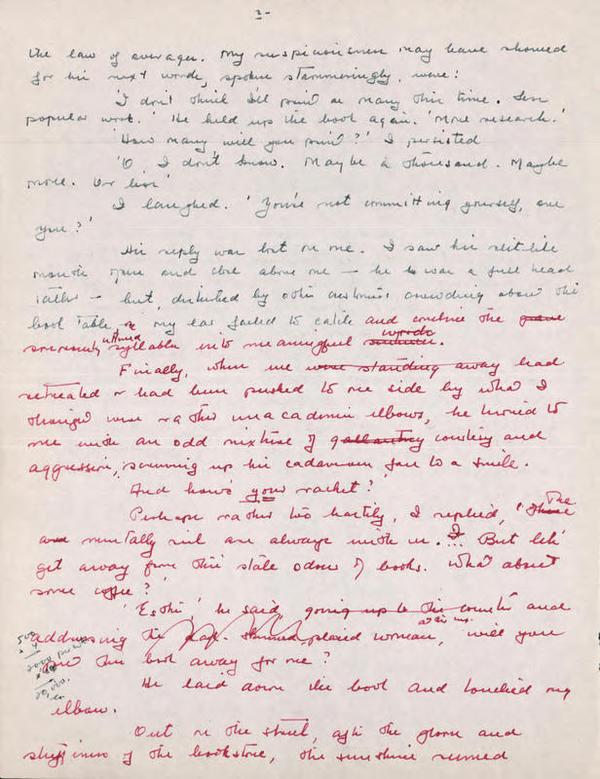 2-
the law of averages. My suspiciousness may have showed
for his next words, spoken stammeringly, were:
'I don't think I'll print as many this time. Less
popular work.' He held up the book again. 'More research.'
'How many will you print?' I persisted
'O, I don't know. Maybe a thousand. Maybe
more. Or less'
I laughed. 'You're not committing yourself, are
you?'
His reply was lost on me. I saw his slit-like
mouth open and close above me — he was a full head
taller — but, disturbed by other customers crowding about the
book table, my ear failed to catch and combine the
uttered words
syllables into meaningful
Finally, when we were standing away had
retreated or had been pushed to one side by what I
thought were rather unacademic elbows, he turned to
me with an odd mixture of gallantry courtesy and
aggression, screwing up his cadaverous face to a smile.
'And how's your racket?'
The
Perhaps rather too heartily, I replied, 'Those
are mentally sick are always with us. I... But let's
get away from this stale odour of books. What about
some coffee?'
'Esther' he said, going up to the counter and
addressing the placed woman, 'will you
this book away for me?
He laid down the book and touched my
elbow.
Out on the street, after the gloom and
stuffiness of the bookstore, the sunshine seemed